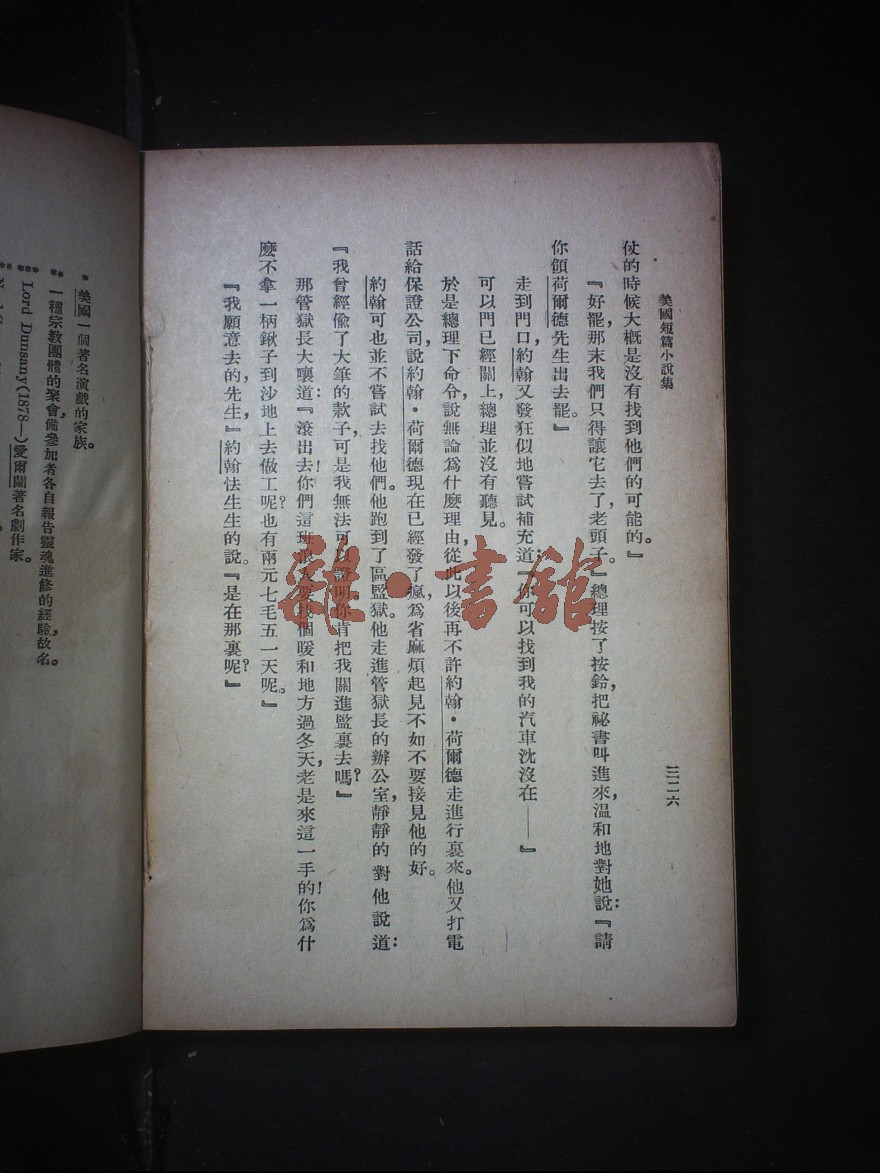 美國短篇小說集
三二六
仗的時候大概是沒有找到他們的可能的。』
『好罷，那末我們只得讓它去了，老頭子。』總理按了按鈴，把祕書叫進來，溫和地對她說：『請
你領荷爾德先生出去罷。』
走到門口，約翰又發狂似地嘗試補充道：『你可以找到我的汽車沈沒在——』
可以門已經關上，總理並沒有聽見。
於是總理下命令，說無論爲什麼理由，從此以後再不許約翰·荷爾德走進行裏來。他又打電
話給保證公司，說約翰·荷爾德現在已經發了瘋，爲省麻煩起見不如不要接見他的好。
約翰可也並不嘗試去找他們。他跑到了區監獄。他走進管獄長的辦公室，靜靜的對他說道：
『我曾經偷了大筆的款子，可是我無法可以證明。你肯把我關進監裏去嗎？』
那管獄長大嚷道：『滾出去！你們這班浪人要找個暖和地方過冬天，老是來這一手的！你爲什
麼不拿一柄鍬子到沙地上去做工呢？也有兩元七毛五一天呢。』
『我願意去的，先生，』約翰怯生生的說。『是在那裏呢？』
* 美國一個著名演戲的家族。
** 一種宗教團體的聚會，備參加者各自報告靈魂進修的經驗，故名。
*** Lord Dunsany(1878—)愛爾蘭著名劇作家。
雜·書館